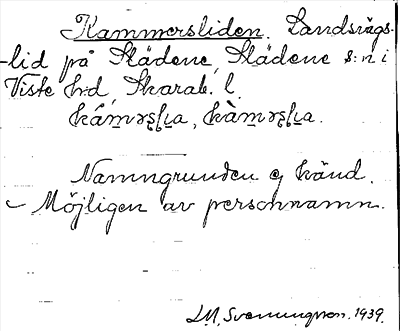 Kammersliden. Landsvägs-
lid på Slädene, Slädene s:n i
Viste h:d, Skarab. l.
Namngrunden ej känd.
Möjligen av personnamn.
L.M. Svenungsson. 1939.